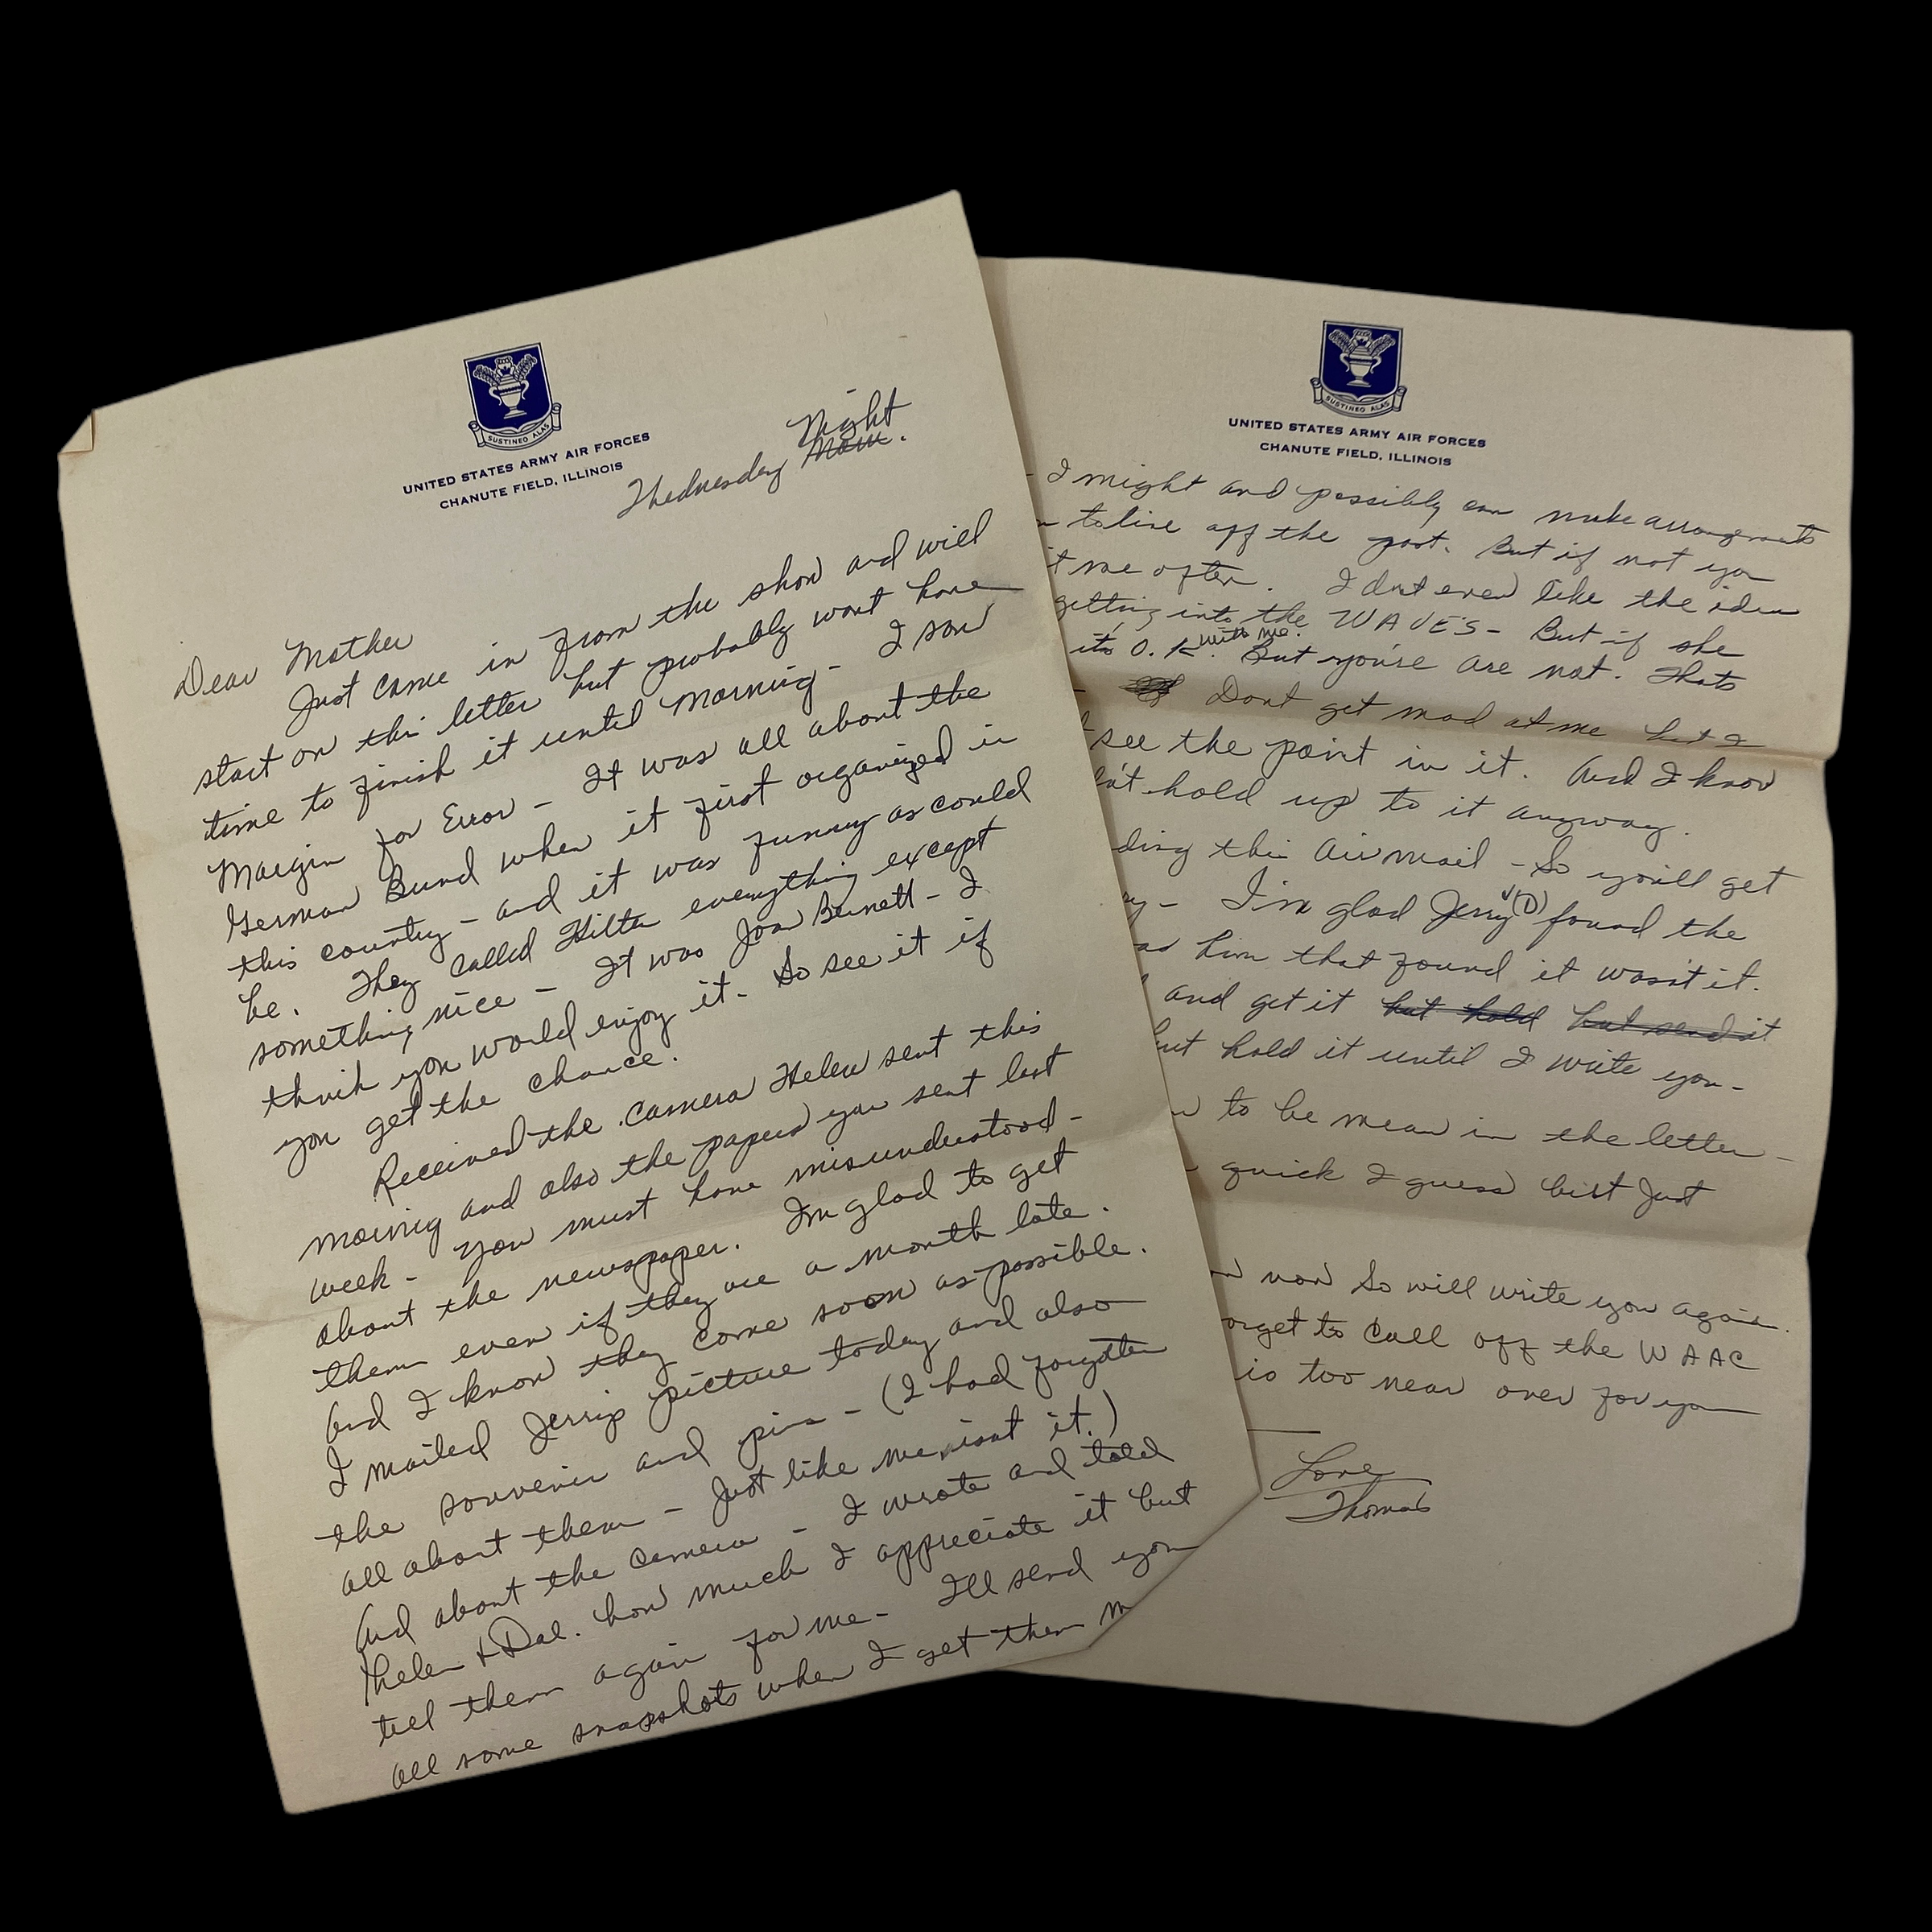 SUSTINEO ALAS
UNITED STATES ARMY AIR FORCES
CHANUTE FIELD, ILLINOIS
Night
Wednesday Morn.
Dear Mother
Just came in from the show and will
start on this letter but probably wont have
time to finish it until morning - I saw
Margin for Error - It was all about the
German Bund when it first organized in
this country - and it was funny as could
be. They called Hitler everything except
something nice - It was Joan Bennett - I
think you would enjoy it - So see it if
you get the chance.
Received the camera Helen sent this
morning and also the papers you sent last
week - You must have misunderstood -
about the newspaper. Im glad to get
them even if they are a month late.
And I know they come soon as possible.
I mailed Jerrys picture today and also
the souvenir and pins - (I had forgotten
all about them - Just like me, isnt it.)
And about the camera - I wrote and told
Helen + Dal. how much I appreciate it but
tell them again for me - I'll send you
all some snapshots when I get them
SUSTINEO ALAS
UNITED STATES ARMY AIR FORCES
CHANUTE FIELD, ILLINOIS
- I might and possibly can make arrangments
to live off the post. But if not you
me often. I dont even like the idea
getting into the WAVES - But if she
its O.K. with me. But you're are not. Thats
- Dont get mad at me but I
see the point in it. And I know
hold up to it anyway.
this Air mail - So you'll get
- I'm glad Jerry (D) found the
him that found it wasn't it.
and get it but hold but send it
but hold it until I write you -
to be mean in the letter -
quick I guess but Just
now So will write you again.
to call off the WAAC
is too near over for you
Love
Thomas